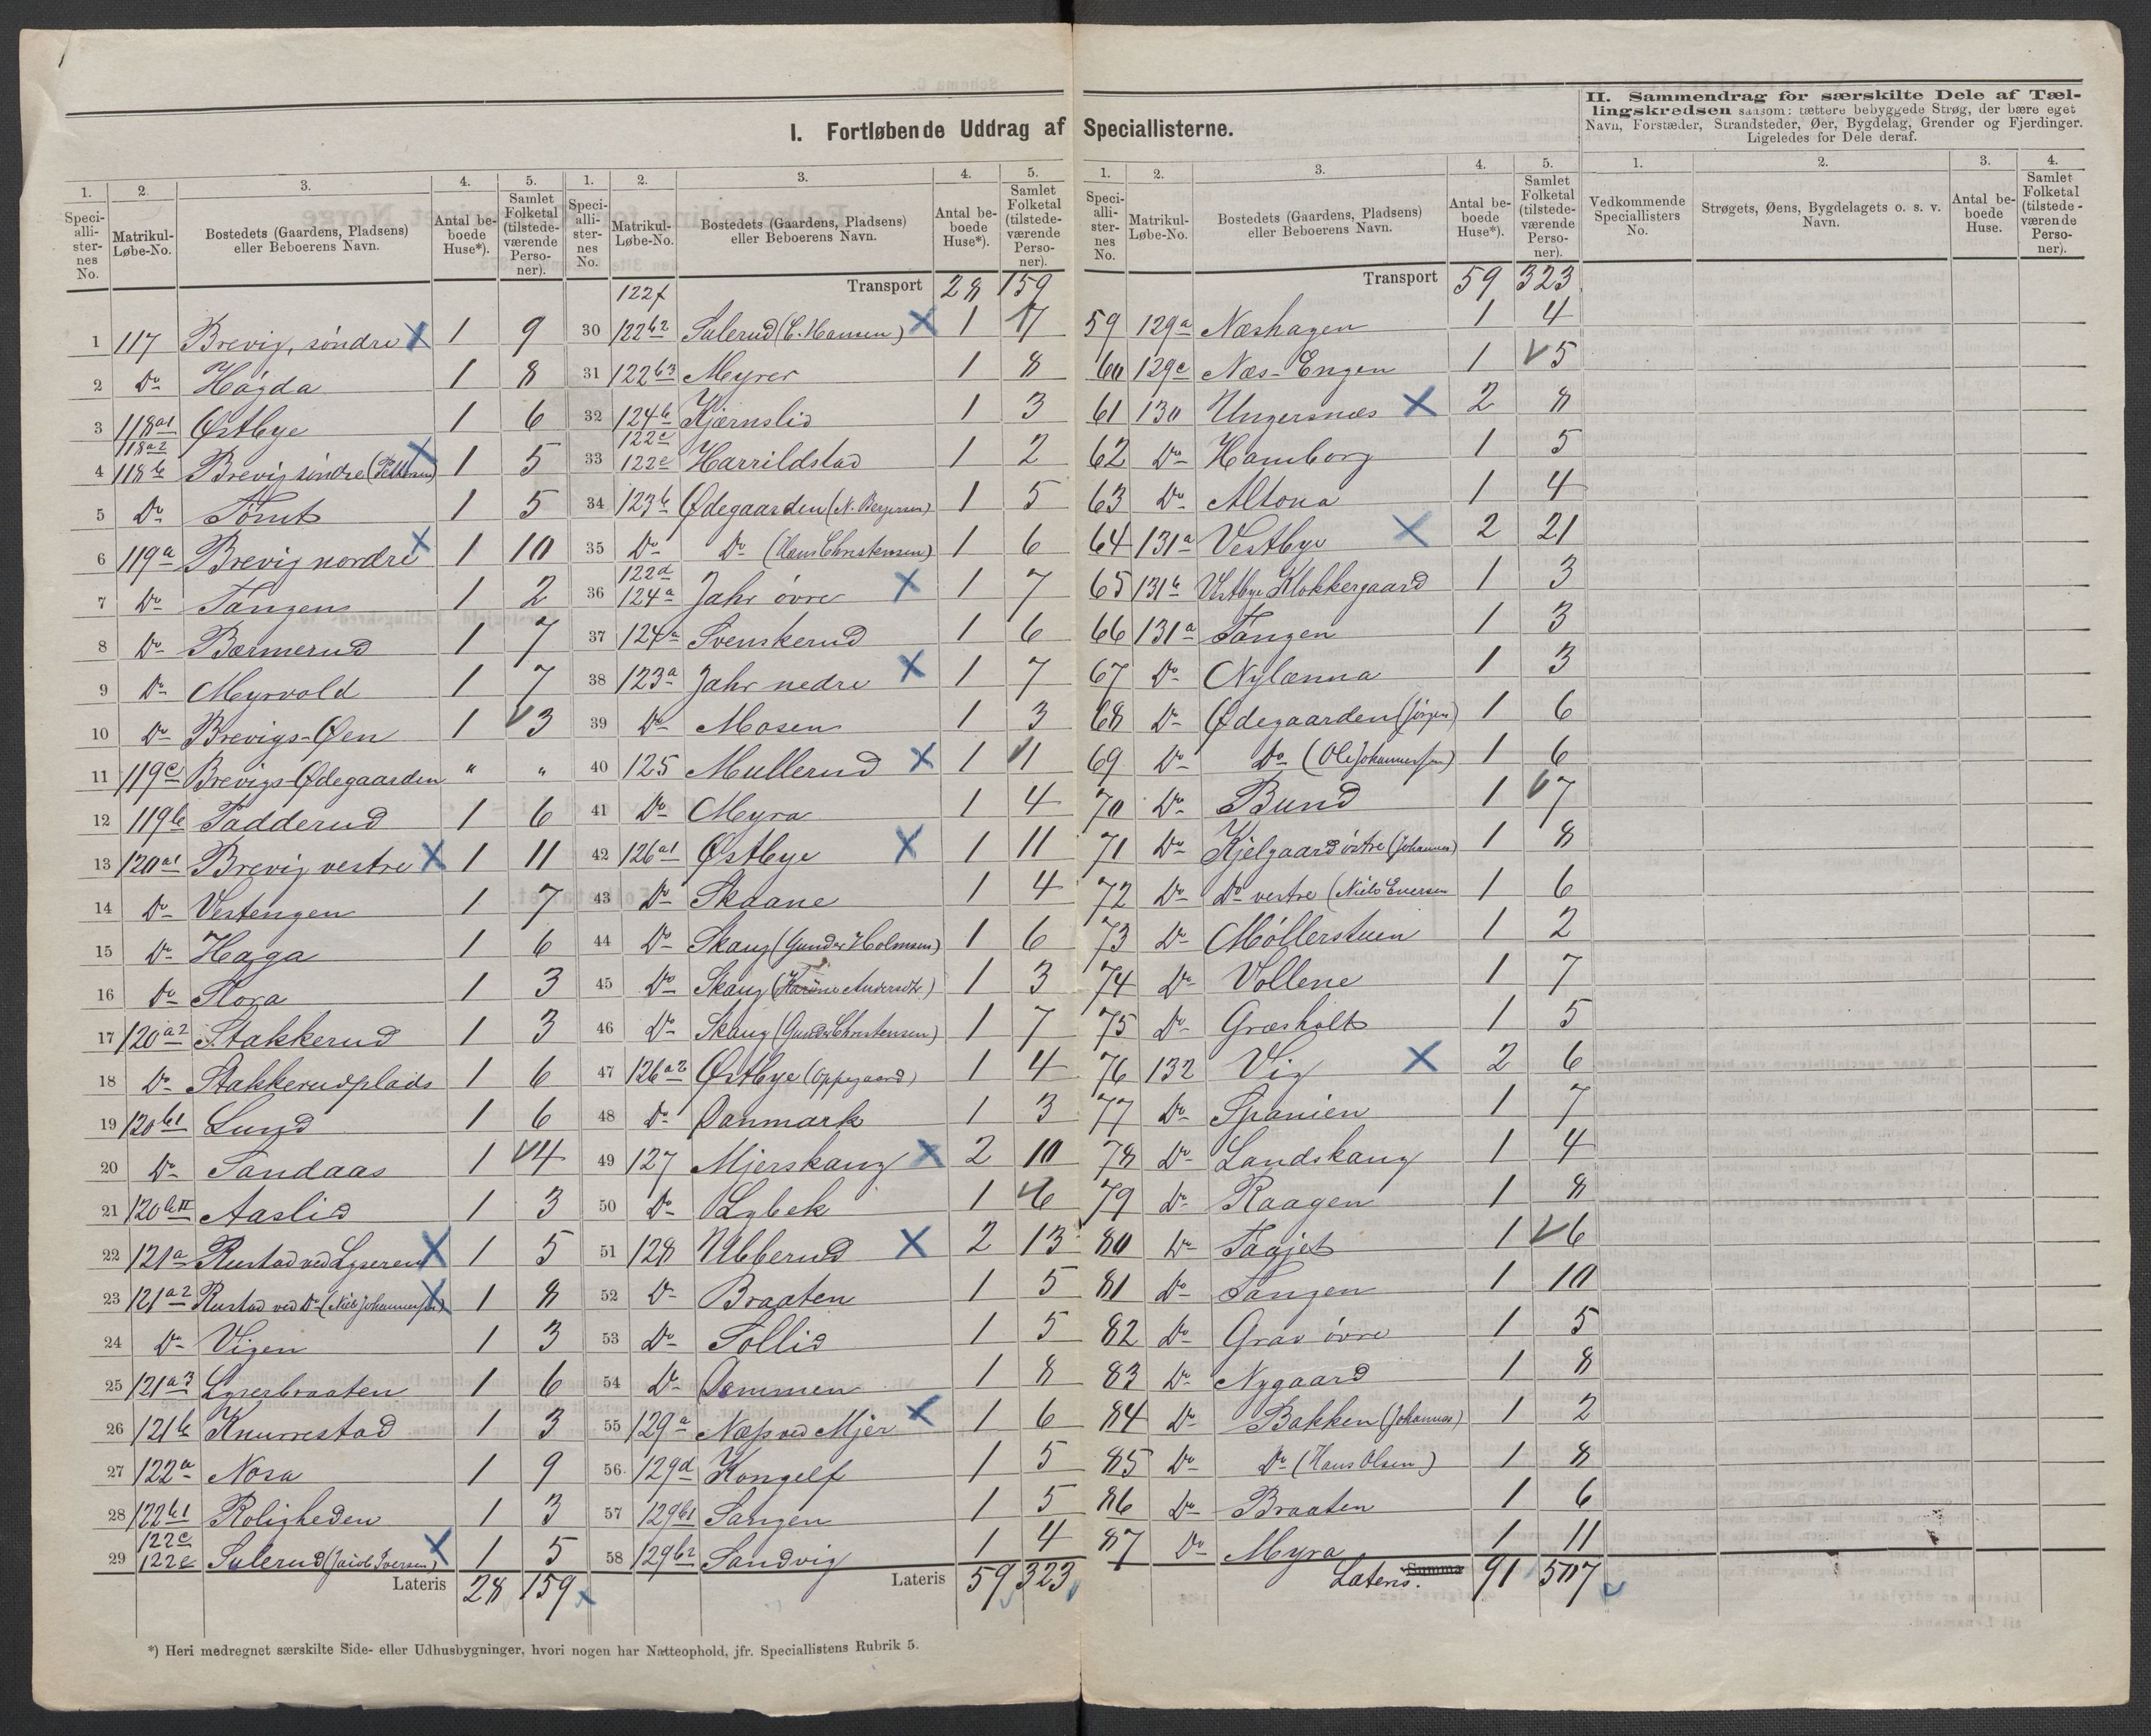 I. Fortløbende Uddrag af Speciallisterne.
II. Sammendrag for særskilte Dele af Tæl-
lingskredsen saasom: tættere bebyggede Strøg, der bære eget
Navn, Forstæder, Strandsteder, Øer, Bygdelag, Grender og Fjerdinger.
Ligeledes for Dele deraf.
1. 2. 3. 4. 5.
Speciallisternes No. Matrikul-Løbe-No. Bostedets (Gaardens, Pladsens) eller Beboerens Navn. Antal beboede Huse*). Samlet Folketal (tilstedeværende Personer).
1 117 Brevig, søndre X 1 9
2 Do Høgda 1 8
3 118a1 Østbye 1 6
118a2
4 118b Brevig søndre (Pettersen) X 1 5
5 Do Tomt 1 5
6 119a Brevig nordre X 1 10
7 Do Tangen 1 2
8 Do Bærmerud 1 7
9 Do Myrvold 1 7
10 Do Brevigs-Øen 1 V3
11 119c Brevigs-Ødegaarden " "
12 119b Fadderud 1 6
13 120a1 Brevig vestre X 1 11
14 Do Vestengen 1 7
15 Do Haga 1 6
16 Do Flora 1 3
17 120a2 Stakkerud 1 3
18 Do Stakkerudplads 1 6
19 120b1 Lund 1 6
20 Do Sandaas 1 V4
21 120bII Aaslid 1 3
22 121a Rustad ved Lyseren X 1 5
23 121a2 Rustad ved Do (Niels Johannessen) X 1 8
24 Do Vigen 1 3
25 121a3 Lyserbraaten 1 6
26 121b Knurrestad 1 3
27 122a Nora 1 9
28 122b1 Roligheden 1 3
122c
29 122e Sulerud (Jacob Iversen) X 1 5
Lateris 28 159
1. 2. 3. 4. 5.
Speciallisternes No. Matrikul-Løbe-No. Bostedets (Gaardens, Pladsens) eller Beboerens Navn. Antal beboede Huse*). Samlet Folketal (tilstedeværende Personer).
Transport 28 159
122f
30 122b2 Sulerud (C. Hansen) X 1 7
31 122b3 Myrer 1 8
32 124b Kjærnslid 1 3
122c
33 122e Harrildstad 1 2
34 123b Ødegaarden (N. Bergersen) 1 5
35 Do Do (Hans Christensen) 1 6
122d
36 124a Jahr øvre X 1 7
37 124a Svenskerud 1 6
38 123a Jahr nedre X 1 7
39 Do Mosen 1 3
40 125 Mullerud X 1 V1
41 Do Myra 1 4
42 126a1 Østbye X 1 11
43 Do Skaane 1 4
44 Do Skaug (Gunder Holmsen) 1 6
45 Do Skaug (Karine Andersdtr.) 1 3
46 Do Skaug (Gunder Christensen) 1 7
47 126a2 Østbye (Oppegaard) 1 4
48 Do Danmark 1 3
49 127 Mjerskaug X 2 10
50 Do Lybek 1 V6
51 128 Ubberud X 2 13
52 Do Braaten 1 5
53 Do Sollid 1 5
54 Do Dammen 1 8
55 129a Næss ved Mjer X 1 6
56. 129d Kongelf 1 5
57 129b1 Tangen 1 5
58 129b2 Sandvig 1 4
Lateris 59 323
1. 2. 3. 4. 5.
Speciallisternes No. Matrikul-Løbe-No. Bostedets (Gaardens, Pladsens) eller Beboerens Navn. Antal beboede Huse*). Samlet Folketal (tilstedeværende Personer).
Transport 59 323
59 129a Næshagen 1 4
60 129c Næs-Engen 1 V5
61 130 Ungersnæs X 2 8
62 Do Hamborg 1 5
63 Do Altona 1 4
64 131a Vestbye X 2 21
65 131b Vestbye Klokkergaard 1 3
66 131a Tangen 1 3
67 Do Nylænna 1 3
68 Do Ødegaarden (Jørgen) 1 6
69 Do Do (Ole Johannessen) 1 6
70 Do Bund 1 V7
71 Do Kjelgaard østre (Johannes) 1 8
72 Do Do vestre (Niels Eversen 1 6
73 Do Møllerstuen 1 2
74 Do Vollene 1 7
75 Do Græsholt 1 5
76 132 Vig X 2 6
77 Do Spanien 1 7
78 Do Landskaug 1 4
79 Do Raagen 1 8
80 Do Taajet 1 V6
81 Do Tangen 1 10
82 Do Grav øvre 1 5
83 Do Nygaard 1 8
84 Do Bakken (Johannes) 1 2
85 Do Do (Hans Olsen) 1 8
86 Do Braaten 1 6
87 Do Myra 1 11
Lateris. Summa 91 507
1. 2. 3. 4.
Vedkommende Speciallisters No. Strøgets, Øens, Bygdelagets o. s. v. Navn. Antal beboede Huse. Samlet Folketal (tilstedeværende Personer).
*) Heri medregnet særskilte Side- eller Udhusbygninger, hvori nogen har Natteophold, jfr. Speciallistens Rubrik 5.